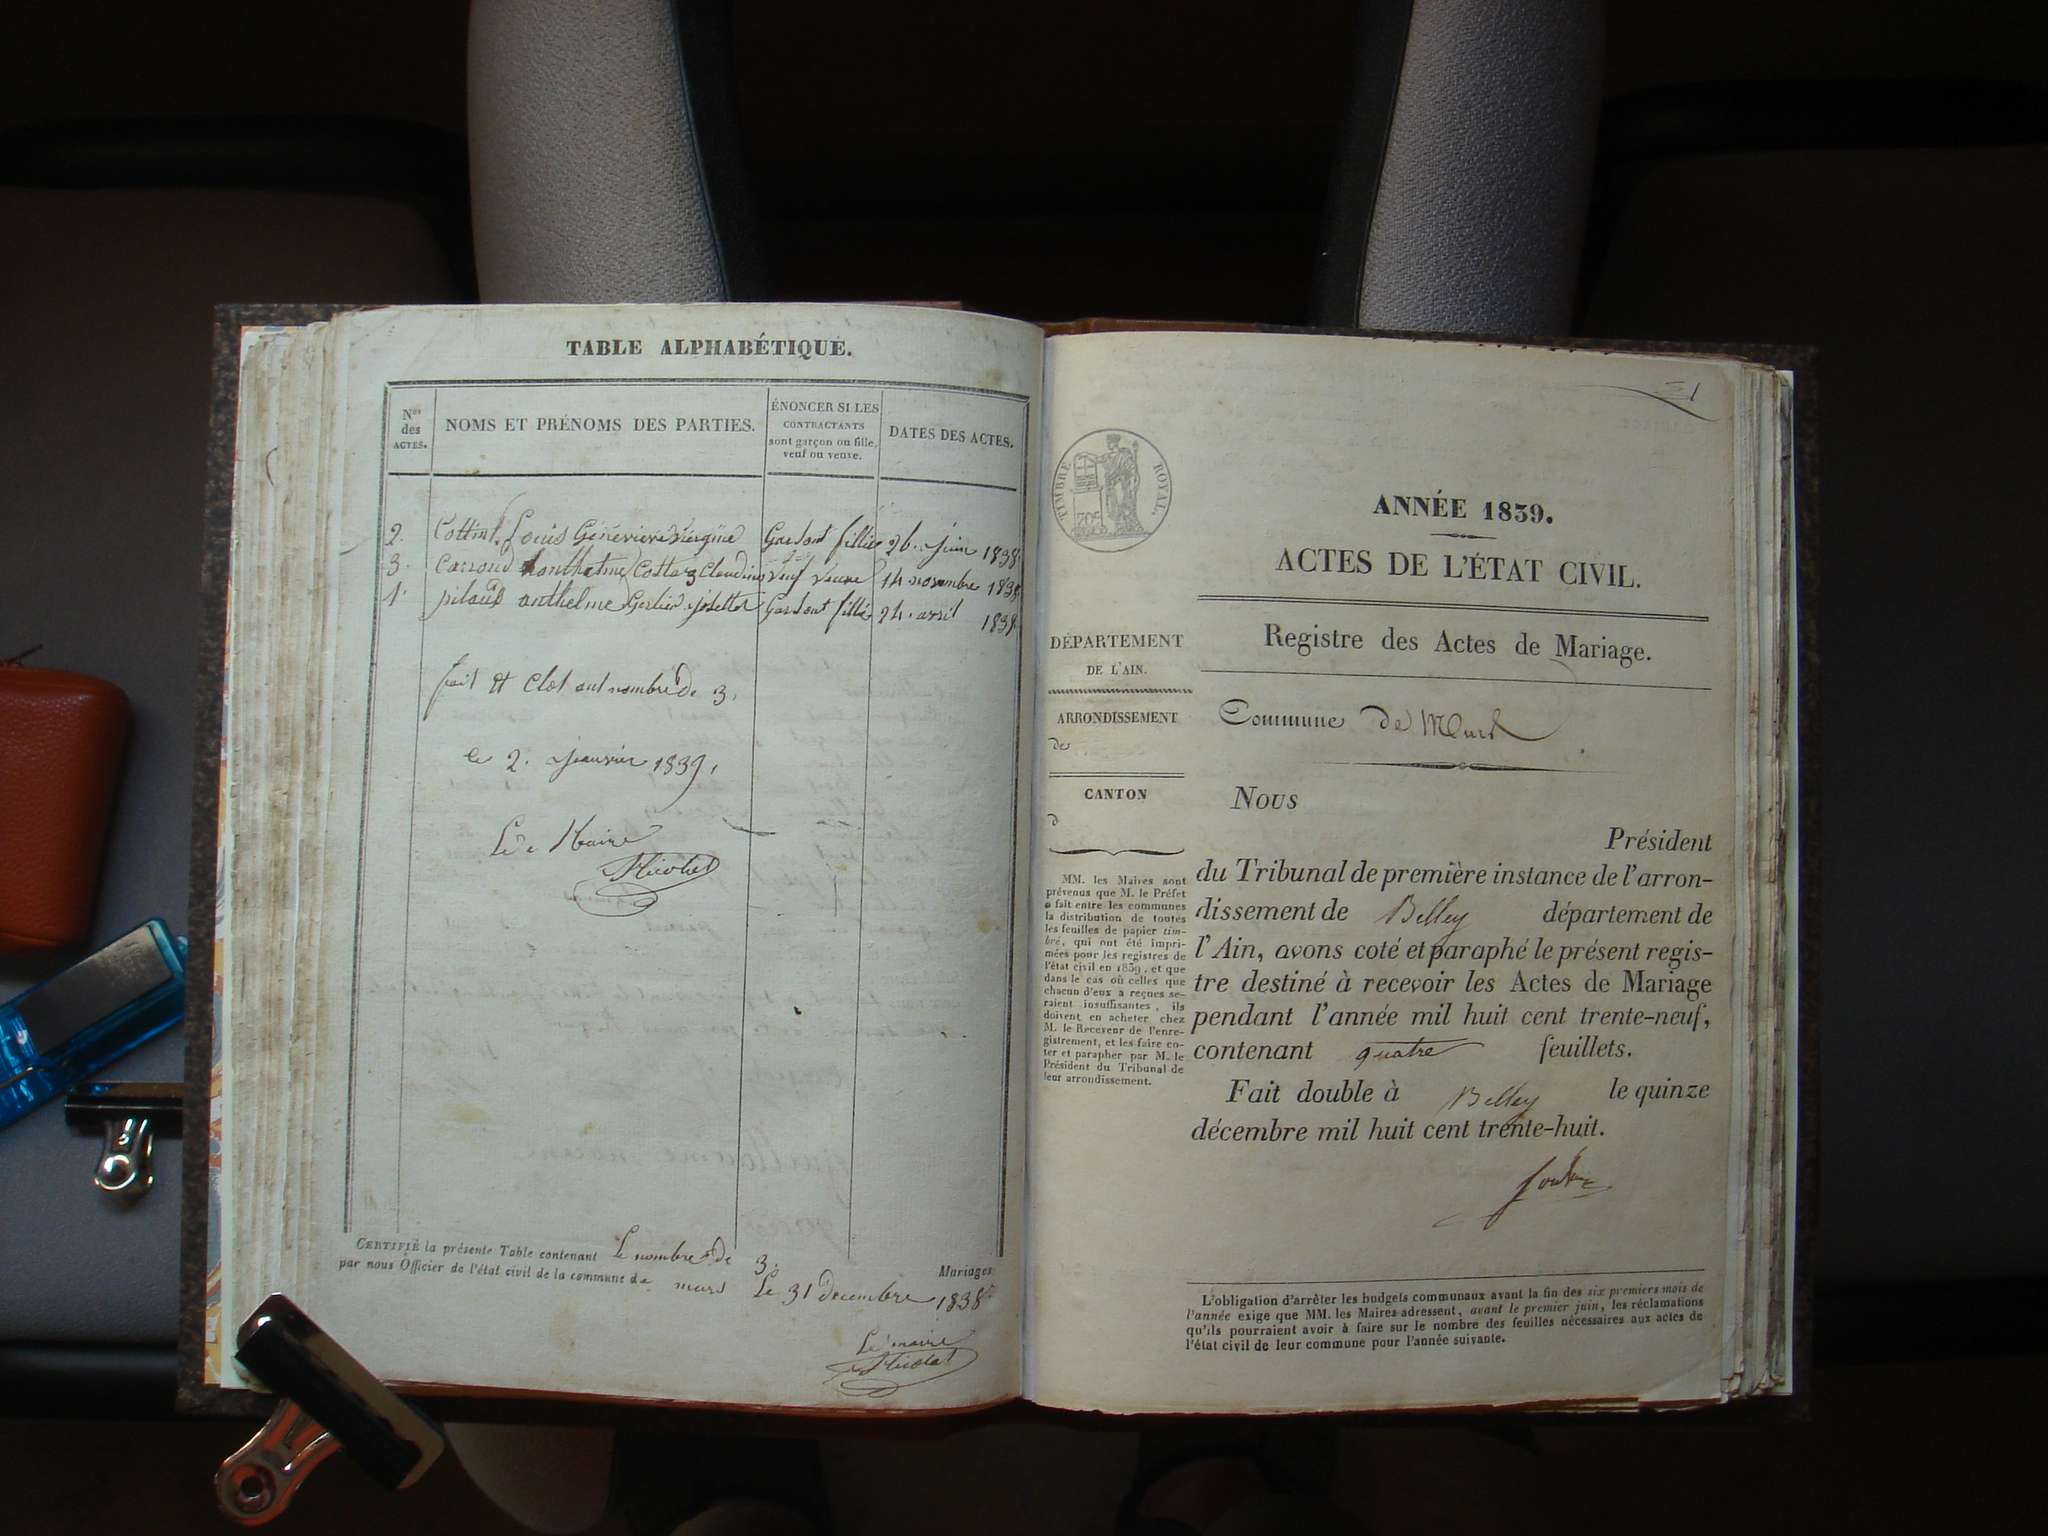 TABLE ALPHABÉTIQUE.
Nos des ACTES.
NOMS ET PRÉNOMS DES PARTIES.
ÉNONCER SI LES CONTRACTANTS sont garçon ou fille, veuf ou veuve.
DATES DES ACTES.
2. Louis Genevieve Vergine Garsont fillie 26. juin 1838.
3. Costaz Claudine veuf veuve 14 novembre 1838
1. anthelme Josette Garsont fillie 24. avril 1838.
fait et Clot aut nombre de 3.
le 2. Jeanvier 1839,
Le Maire
Nicolet
CERTIFIÉ la présente Table contenant le nombre de 3. Mariages
par nous Officier de l'état civil de la commune de murs Le 31 decembre 1838
Le maire
Nicolet
1
TIMBRE ROYAL
70c
ANNÉE 1839.
ACTES DE L'ÉTAT CIVIL.
Registre des Actes de Mariage.
DÉPARTEMENT
DE L'AIN.
ARRONDISSEMENT
de
CANTON
d
MM. les Maires sont
prévenus que M. le Préfet
a fait entre les communes
la distribution de toutes
les feuilles de papier tim-
bré, qui ont été impri-
mées pour les registres de
l'état civil en 1839, et que
dans le cas où celles que
chacun d'eux a reçues se-
raient insuffisantes, ils
doivent en acheter chez
M. le Receveur de l'enre-
gistrement, et les faire co-
ter et parapher par M. le
Président du Tribunal de
leur arrondissement.
Commune de Murs
Nous
Président
du Tribunal de première instance de l'arron-
dissement de Belley département de
l'Ain, avons coté et paraphé le présent regis-
tre destiné à recevoir les Actes de Mariage
pendant l'année mil huit cent trente-neuf,
contenant quatre feuillets.
Fait double à Belley le quinze
décembre mil huit cent trente-huit.
L'obligation d'arrêter les budgets communaux avant la fin des six premiers mois de
l'année exige que MM. les Maires adressent, avant le premier juin, les réclamations
qu'ils pourraient avoir à faire sur le nombre des feuilles nécessaires aux actes de
l'état civil de leur commune pour l'année suivante.